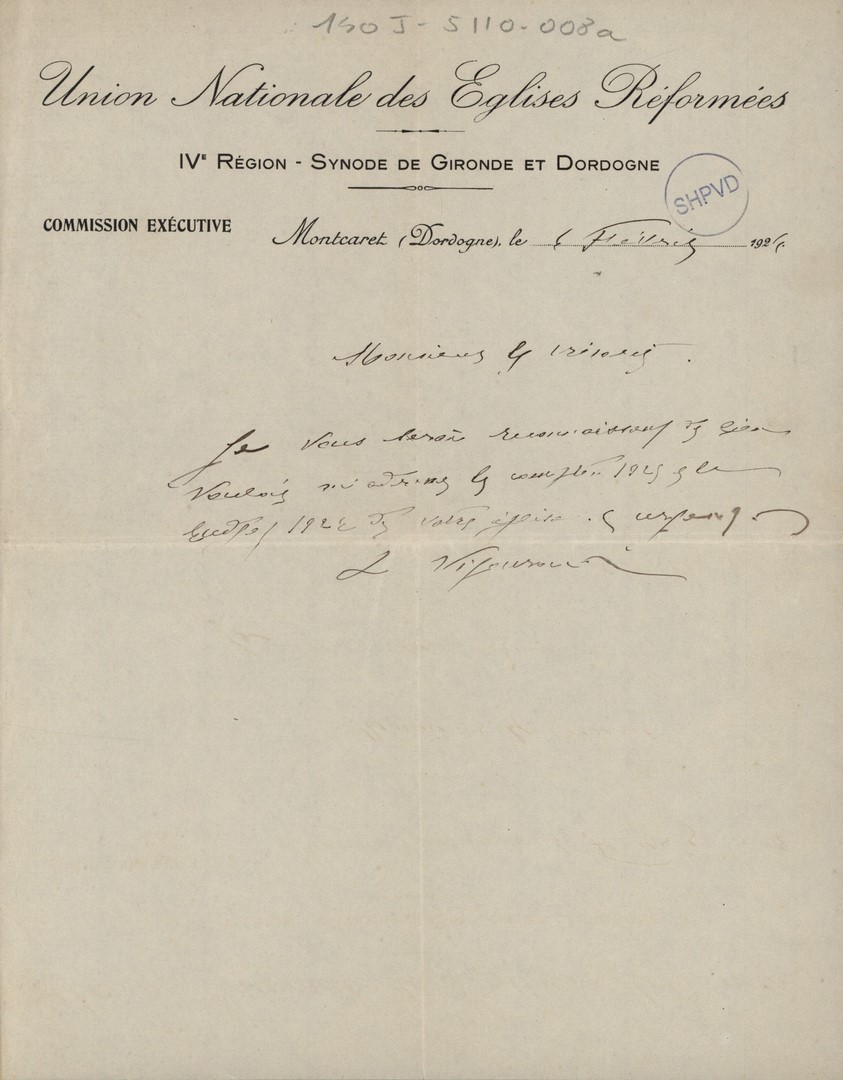 150 J - 5110-008a
Union Nationale des Eglises Réformées
IVE RÉGION - SYNODE DE GIRONDE ET DORDOGNE
SHPVD
COMMISSION EXÉCUTIVE
Montcaret (Dordogne), le 6 Février 192
Monsieur le trésorier.
Je vous serais reconnaissant de bien
vouloir m'adresser les comptes 1925 et le
budget 192 de votre église. urgent.
L Vigouroux